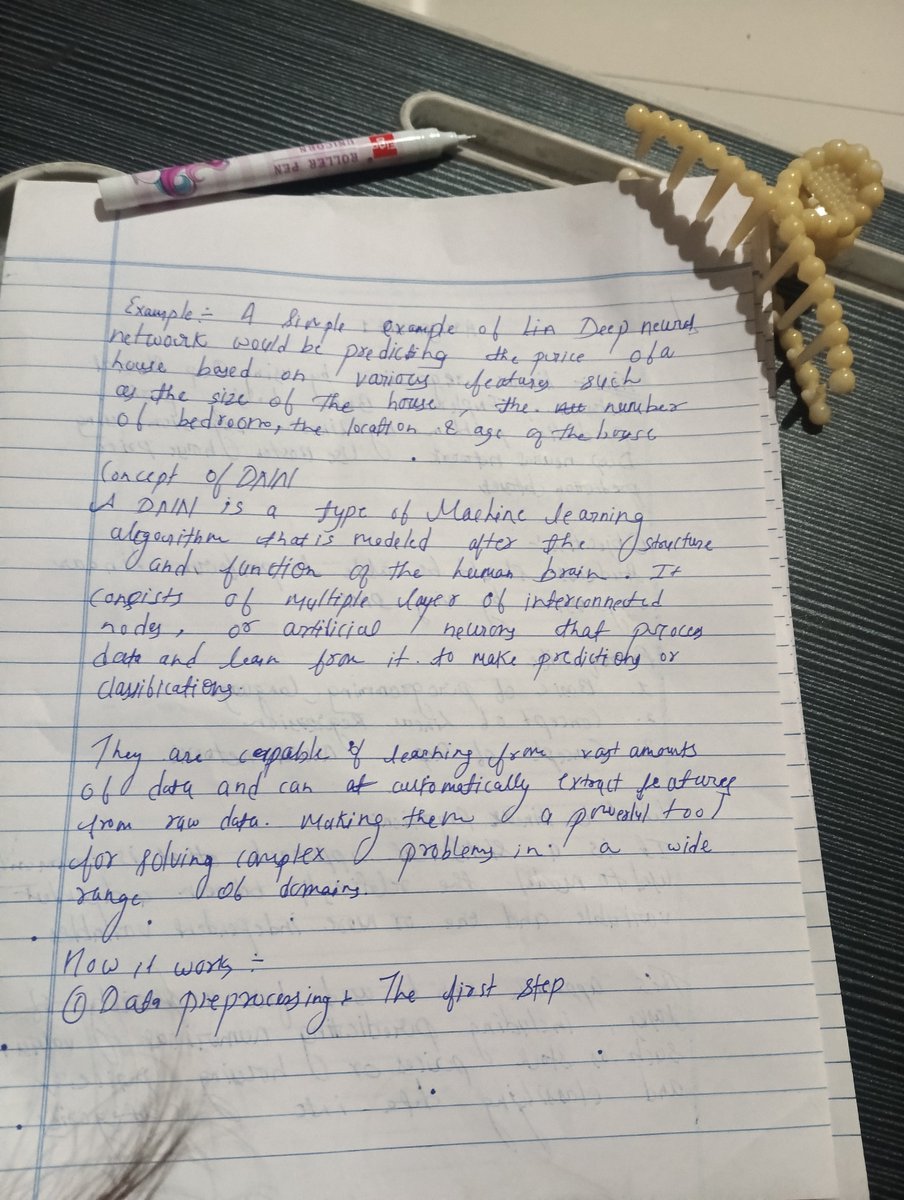 cello
ROLLER PEN
UNICORN
Example :- A simple example of Lin Deep neural
network would be predicting the price of a
house based on various features such
as the size of The house, the number
of bedroom, the location & age of the house
Concept of DNN
A DNN is a type of Machine learning
algorithm that is modeled after the structure
and function of the human brain. It
consists of multiple layer of interconnected
nodes, or artificial neurons that process
data and learn from it. to make predictions or
classifications.
They are capable of learning from vast amounts
of data and can automatically extract features
from raw data. Making them a powerful tool
for solving complex problems in a wide
range of domains.
How it works :-
① Data preprocessing :- The first step